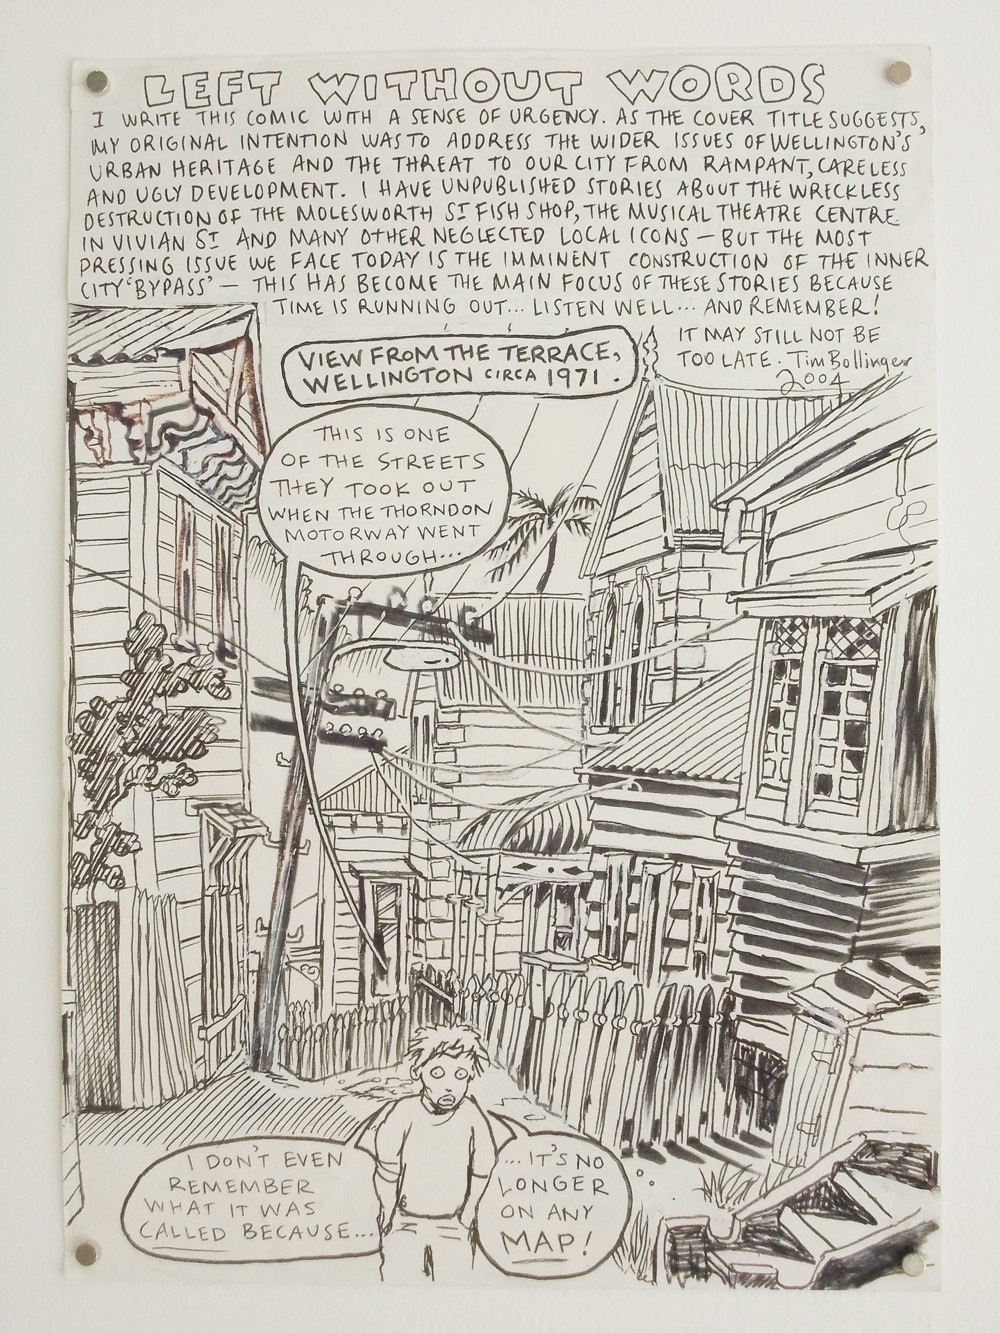 LEFT WITHOUT WORDS
I WRITE THIS COMIC WITH A SENSE OF URGENCY. AS THE COVER TITLE SUGGESTS,
MY ORIGINAL INTENTION WAS TO ADDRESS THE WIDER ISSUES OF WELLINGTON'S
URBAN HERITAGE AND THE THREAT TO OUR CITY FROM RAMPANT, CARELESS
AND UGLY DEVELOPMENT. I HAVE UNPUBLISHED STORIES ABOUT THE WRECKLESS
DESTRUCTION OF THE MOLESWORTH ST FISH SHOP, THE MUSICAL THEATRE CENTRE
IN VIVIAN ST AND MANY OTHER NEGLECTED LOCAL ICONS – BUT THE MOST
PRESSING ISSUE WE FACE TODAY IS THE IMMINENT CONSTRUCTION OF THE INNER
CITY 'BYPASS' – THIS HAS BECOME THE MAIN FOCUS OF THESE STORIES BECAUSE
TIME IS RUNNING OUT... LISTEN WELL... AND REMEMBER!
IT MAY STILL NOT BE
TOO LATE. Tim Bollinger
2004
VIEW FROM THE TERRACE,
WELLINGTON CIRCA 1971.
THIS IS ONE
OF THE STREETS
THEY TOOK OUT
WHEN THE THORNDON
MOTORWAY WENT
THROUGH...
I DON'T EVEN
REMEMBER
WHAT IT WAS
CALLED BECAUSE...
...IT'S NO
LONGER
ON ANY
MAP!